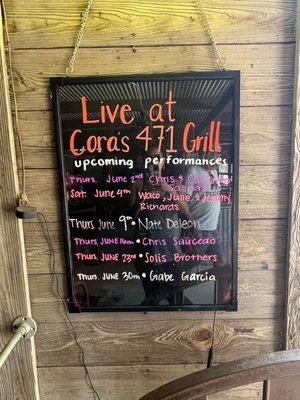 Live at
Cora's 471 Grill
upcoming performances
Thurs, June 2nd Chris &
Salinas
Sat. June 4th Waco, Julie, & Jeremy
Richards
Thurs June 9th • Nate Deleon
Thurs, June 16th • Chris Saucedo
Thurs, June 23rd • Solis Brothers
Thurs, June 30th • Gabe Garcia